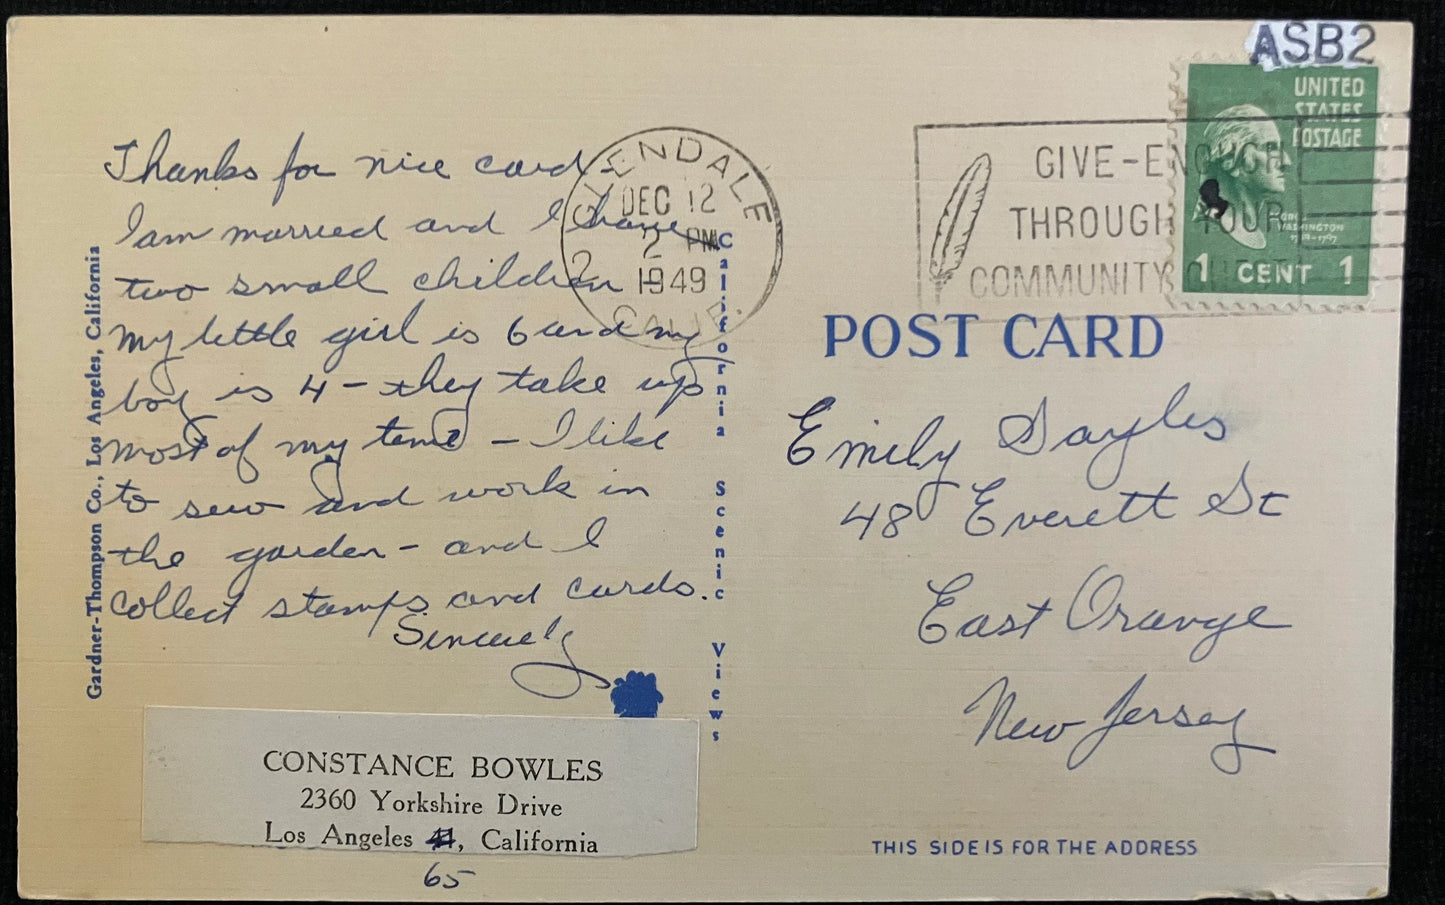 ASB2
UNITED
STATES
POSTAGE
WASHINGTON
1 CENT 1
GLENDALE
DEC 12
2 PM
1949
CALIF.
2
GIVE-ENOUGH
THROUGH YOUR
COMMUNITY
Thanks for nice card
I am married and I have
two small children
My little girl is 6 and my
boy is 4 - they take up
most of my time - I like
to sew and work in
the garden - and I
collect stamps and cards.
Sincerely
CONSTANCE BOWLES
2360 Yorkshire Drive
Los Angeles 41, California
65
Gardner-Thompson Co., Los Angeles, California
California Scenic Views
POST CARD
Emily Sayles
48 Everett St
East Orange
New Jersey
THIS SIDE IS FOR THE ADDRESS